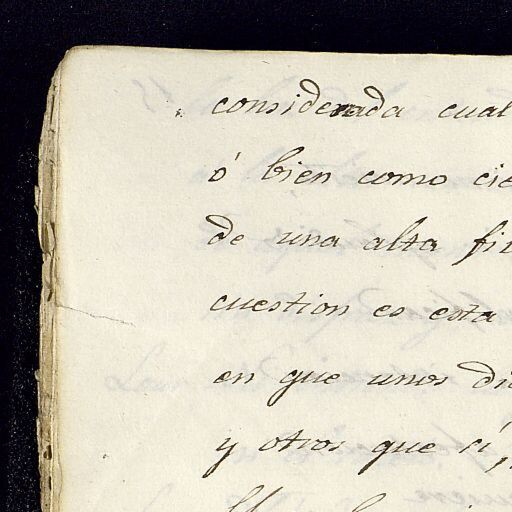 considerada cual
ó bien como cie
de una alta fi
cuestion es esta
en que unos di
y otros que sí,